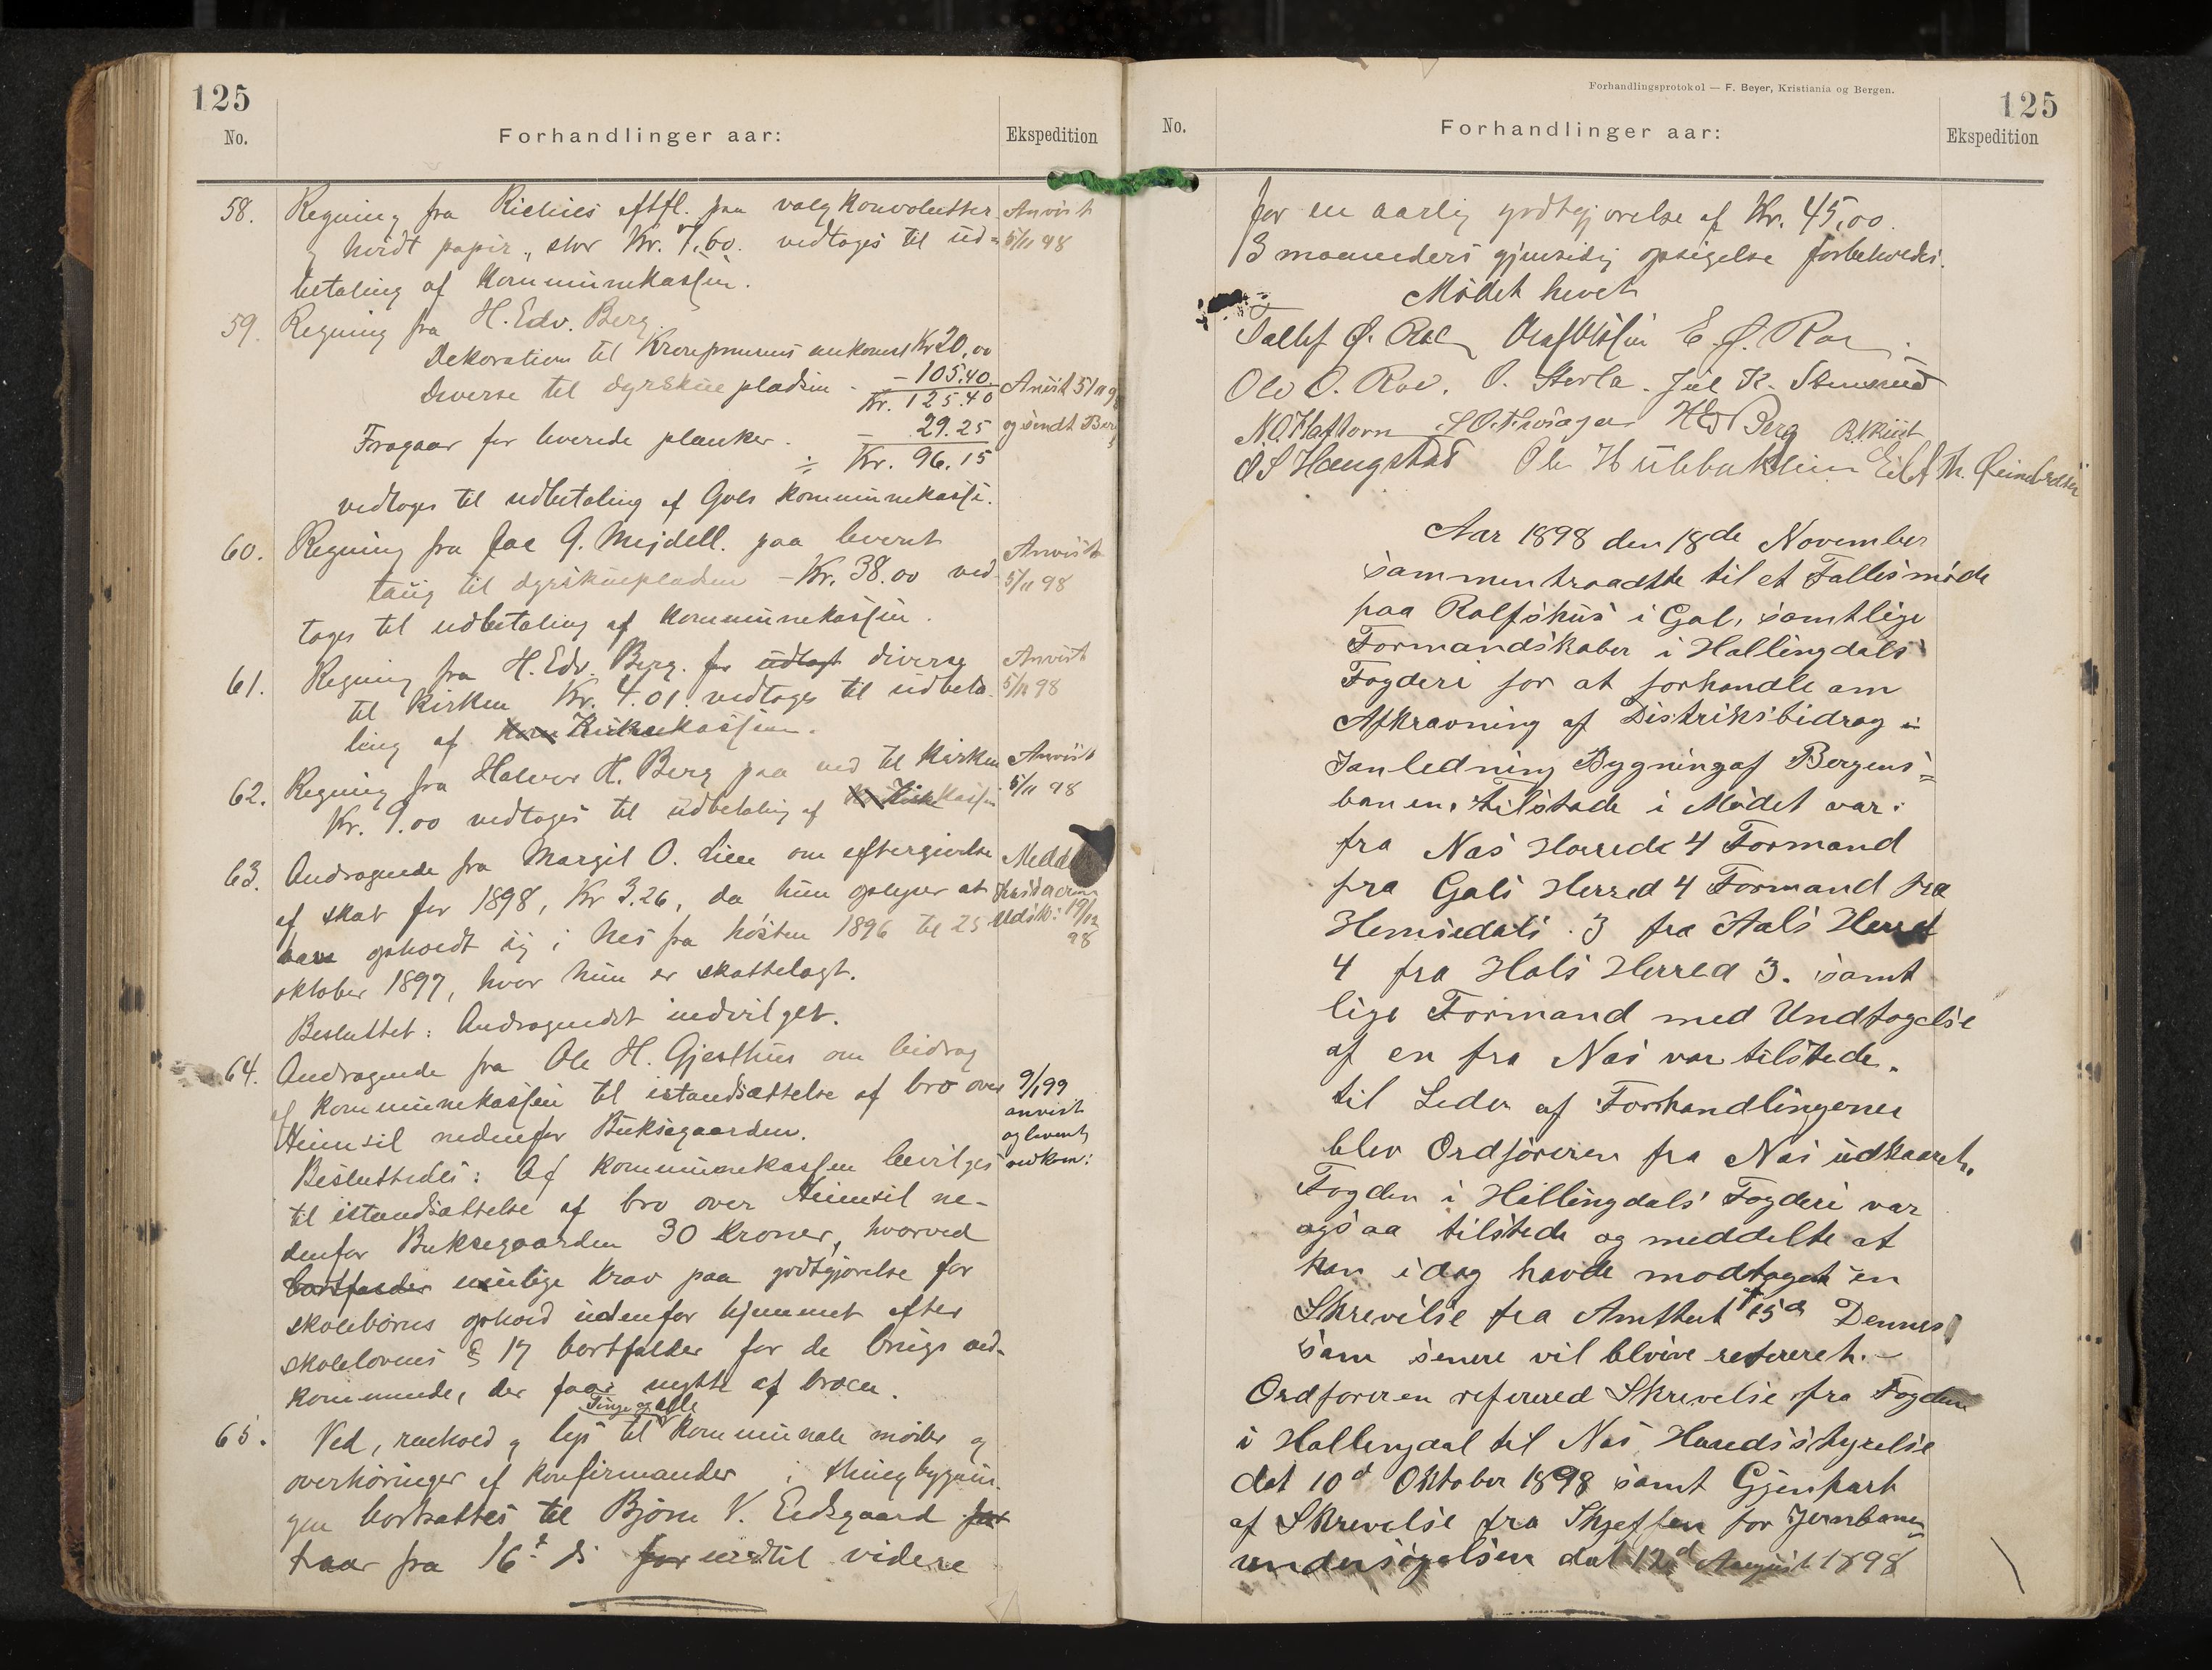 125
No.
Forhandlinger aar:
Ekspedition
58. Regning fra Richies eftfl. paa valgkonvolutter
g hvidt papir, stor Kr. 7.60. vedtages til ud=
betaling af Kommunekassen.
Anvist
5/11 98
59. Regning fra H. Edv. Berg.
Dekoration til Kronprinsens ankomst Kr 20,00
Diverse til dyrskuepladsen - 105.40
Kr. 125.40
Fragaar for leverede planker. - 29.25
÷ Kr. 96.15
vedtages til udbetaling af Gols kommunekasse.
Anvist 5/11 98
og sendt Berg
60. Regning fra Jac G. Mejdell. paa levert
taug til dyrskuepladsen - Kr. 38.00 ved
tages til udbetaling af Kommunekassen.
Anvist
5/11 98
61. Regning fra H. Edv. Berg. for udlagt diverse
til Kirken Kr. 4.01 vedtages til udbeta
ling af Kom Kirkekassen.
Anvist
5/11 98
62. Regning fra Halvor H. Berg paa ved til Kirken
Kr. 9.00 vedtages til udbetaling af Kirkekassen
Anvist
5/11 98
63. Andragende fra Margit O. Lien om eftergivelse
af skat for 1898, Kr 3.26, da hun oplyser at
have opholdt sig i Nes fra høsten 1896 til 25
oktober 1897, hvor hun er skattelagt.
Besluttet: Andragendet indvilget.
Medd
Udsk: 19/12
98
64. Andragende fra Ole H. Gjesthus om bidrag
af kommunekassen til istandsættelse af bro over
Heimsil nedenfor Buksegaarden.
Besluttedes: Af kommunekassen bevilges
til istandsættelse af bro over Heimsil ne-
denfor Buksegaarden 30 kroner, hvorved
bortfalder mulige krav paa godtgjørelse for
skolebørns ophold udenfor hjemmet efter
skolelovens § 17 bortfalder for de brugs ved-
kommende, der faar nytte af broen.
9/1 99
anvist
og levert
vedkom:
Tinge og alle
65. Ved, renhold g lys til kommunale møder g
overhøringer af konfirmander i thingbygnin-
gen bortsattes til Bjørn V. Eidsgaard for
t aar fra 16 ds for indtil videre
Forhandlingsprotokol — F. Beyer, Kristiania og Bergen.
125
No.
Forhandlinger aar:
Ekspedition
for en aarlig godtgjørelse af Kr. 45,00.
3 maaneders gjensidig opsigelse forbeholdes.
Mødet hevet
Tollef Ø. Roe Olaf Olssen E. Ø. Roe
Ole O. Roe. O. Storla. Jul K. Stensrud
N.O. Haftorn HEdv Berg
O S Haugstad Ole H Ulsbaksen
Aar 1898 den 18de November
sammentraadtte til et Fallesmøde
paa Rolfshus i Gol, samtlige
Formandskaber i Hallingdals
Fogderi for at forhandle om
Afkrævning af Distriksbidrag i
Janledning Bygning af Bergens=
banen. tilstade i Mødet var:
fra Nas Herrede 4 Formand
fra Gols Herred 4 Formand fra
Hemsedals . 3 fra Aals Herred
4 fra Hols Herred 3. samt
lige Formand med Undtagelse
af en fra Nas var tilstede.
til Leder af Forhandlingerne
blev Ordføreren fra Nas udkaaret.
Fogden i Hallingdals Fogderi var
ogsaa tilstede og meddelte at
han i dag havde modtaget en
Skrevelse fra Amtet 15d Dennes
som senere vil blvive refereret. -
Ordføreren referered Skrevelse fra Fogden
i Hallingdal til Nas Heredsstyrelse
dat 10d Oktober 1898 samt Gjenpart
af Skrevelse fra Chjeffen for Jernbane
undersøgelsen dat 12d August 1898